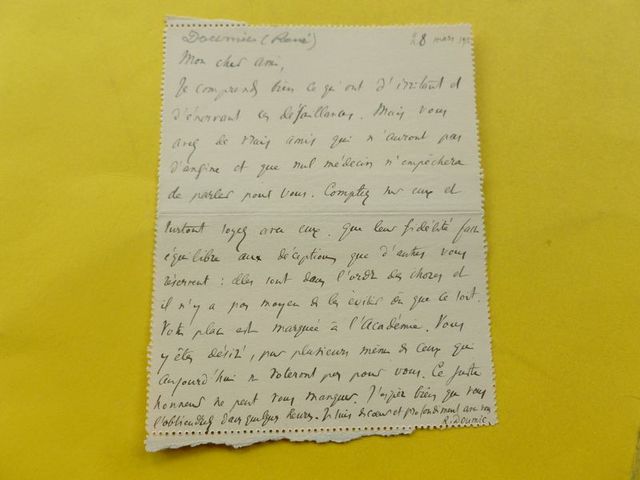 Doumic (René)
28 mars
Mon cher ami,
Je comprends bien ce qu'ont d'irritant et
d'énervant ces défaillances. Mais vous
avez de vrais amis qui n'auront pas
d'angine et que nul médecin n'empêchera
de parler pour vous. Comptez sur eux et
surtout soyez avec eux. Que leur fidélité fasse
équilibre aux déceptions que d'autres vous
réservent : elles sont dans l'ordre des choses et
il n'y a pas moyen de les éviter où que ce soit.
Votre place est marquée à l'Académie. Vous
y êtes désiré, par plusieurs même de ceux qui
aujourd'hui ne voteront pas pour vous. Ce juste
honneur ne peut vous manquer. J'espère bien que vous
l'obtiendrez dans quelques heures. Je suis de cœur et profondément avec vous
R. Doumic